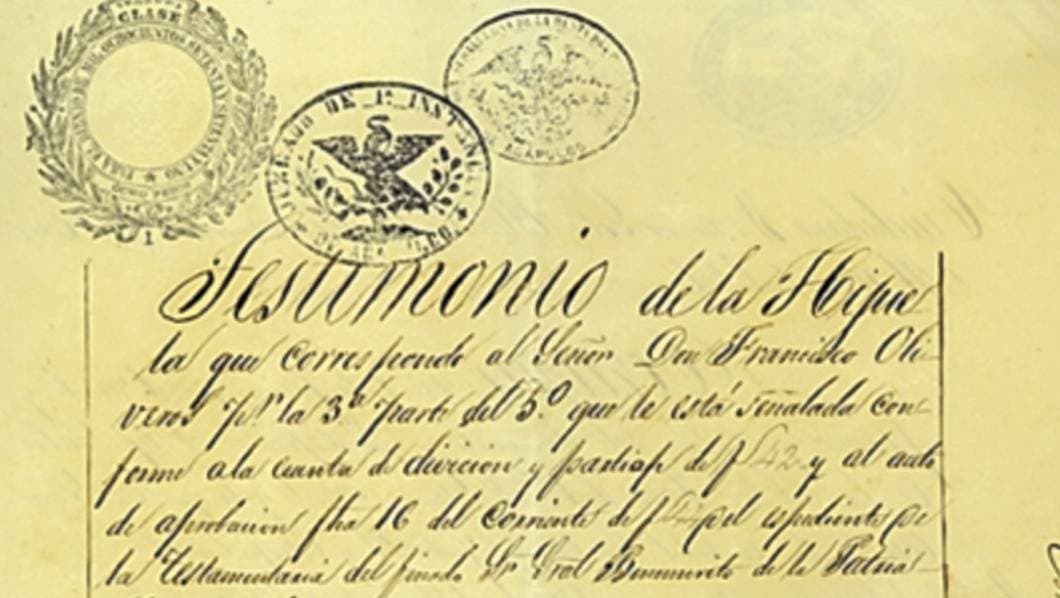 CLASE
JUZGADO DE 1ª INSTANCIA
ACAPULCO
1
Testimonio de la Hijue
la que corresponde al Señor Don Francisco Oli
veros pr. la 3ª parte del 5º que le está señalada con
forme a la cuenta de division y partiaje de f 42 y al auto
de aprobacion fha 16 del corriente de f del espediente de
la Testamentaria del finado Sr Gral Benemerito de la Patria